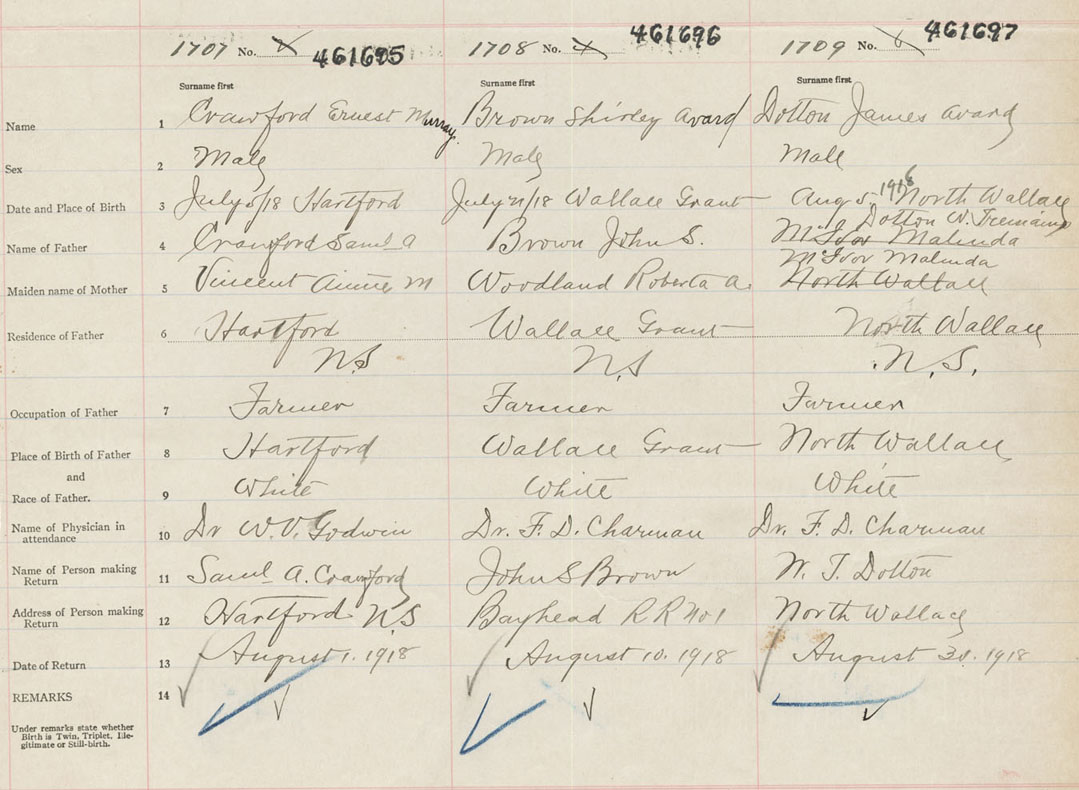 1707 No. 461695 1708 No. 4 461696 1709 No. 6 461697
Surname first Surname first Surname first
Name 1 Crawford Ernest Murray. Brown Shirley Avard Dotton James Avard
Sex 2 Male Male Male
Date and Place of Birth 3 July 5/18 Hartford July 21/18 Wallace Grant Aug 5, 1918 North Wallace
Dotton W. Tremaine
Name of Father 4 Crawford Saml A Brown John S. McIvor Malinda
McIvor Malinda
Maiden name of Mother 5 Vincent Annie M Woodland Roberta A. North Wallace
Residence of Father 6 Hartford Wallace Grant North Wallace
N.S N.S N.S.
Occupation of Father 7 Farmer Farmer Farmer
Place of Birth of Father 8 Hartford Wallace Grant North Wallace
and
Race of Father. 9 White White White
Name of Physician in
attendance 10 Dr W. V. Godwin Dr. F. D. Charman Dr. F. D. Charman
Name of Person making
Return 11 Saml A. Crawford John S Brown W. T. Dotton
Address of Person making
Return 12 Hartford N.S Bayhead R R No 1 North Wallace
Date of Return 13 August 1. 1918 August 10. 1918 August 30. 1918
REMARKS 14
Under remarks state whether
Birth is Twin, Triplet, Ille-
gitimate or Still-birth.